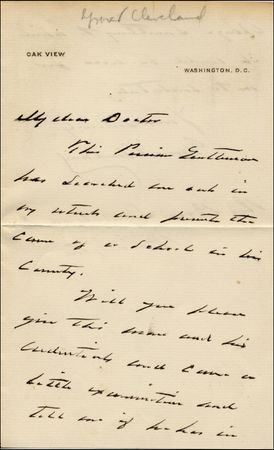 Grover Cleveland
OAK VIEW
WASHINGTON, D.C.
My dear Doctor
This Persian Gentleman
has searched me out in
my retreat and presents the
cause of a School in his
County.
Will you please
give this man and his
credentials and cause a
little examination and
tell me if he is in